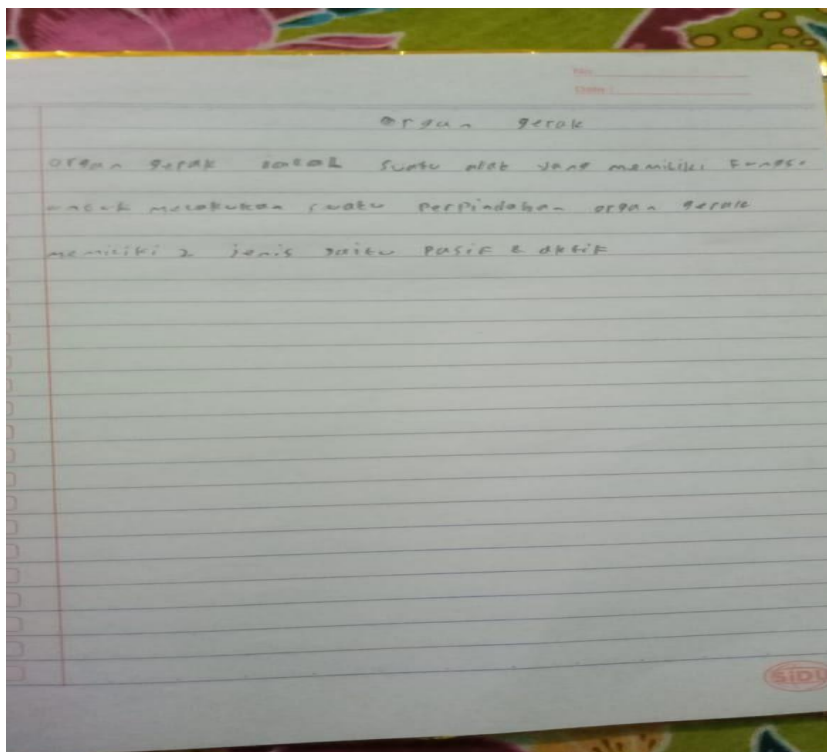 organ gerak
organ gerak adalah suatu alat yang memiliki Fungsi
untuk melakukan suatu perpindahan organ gerak
memiliki 2 jenis yaitu Pasif & aktif
SIDU